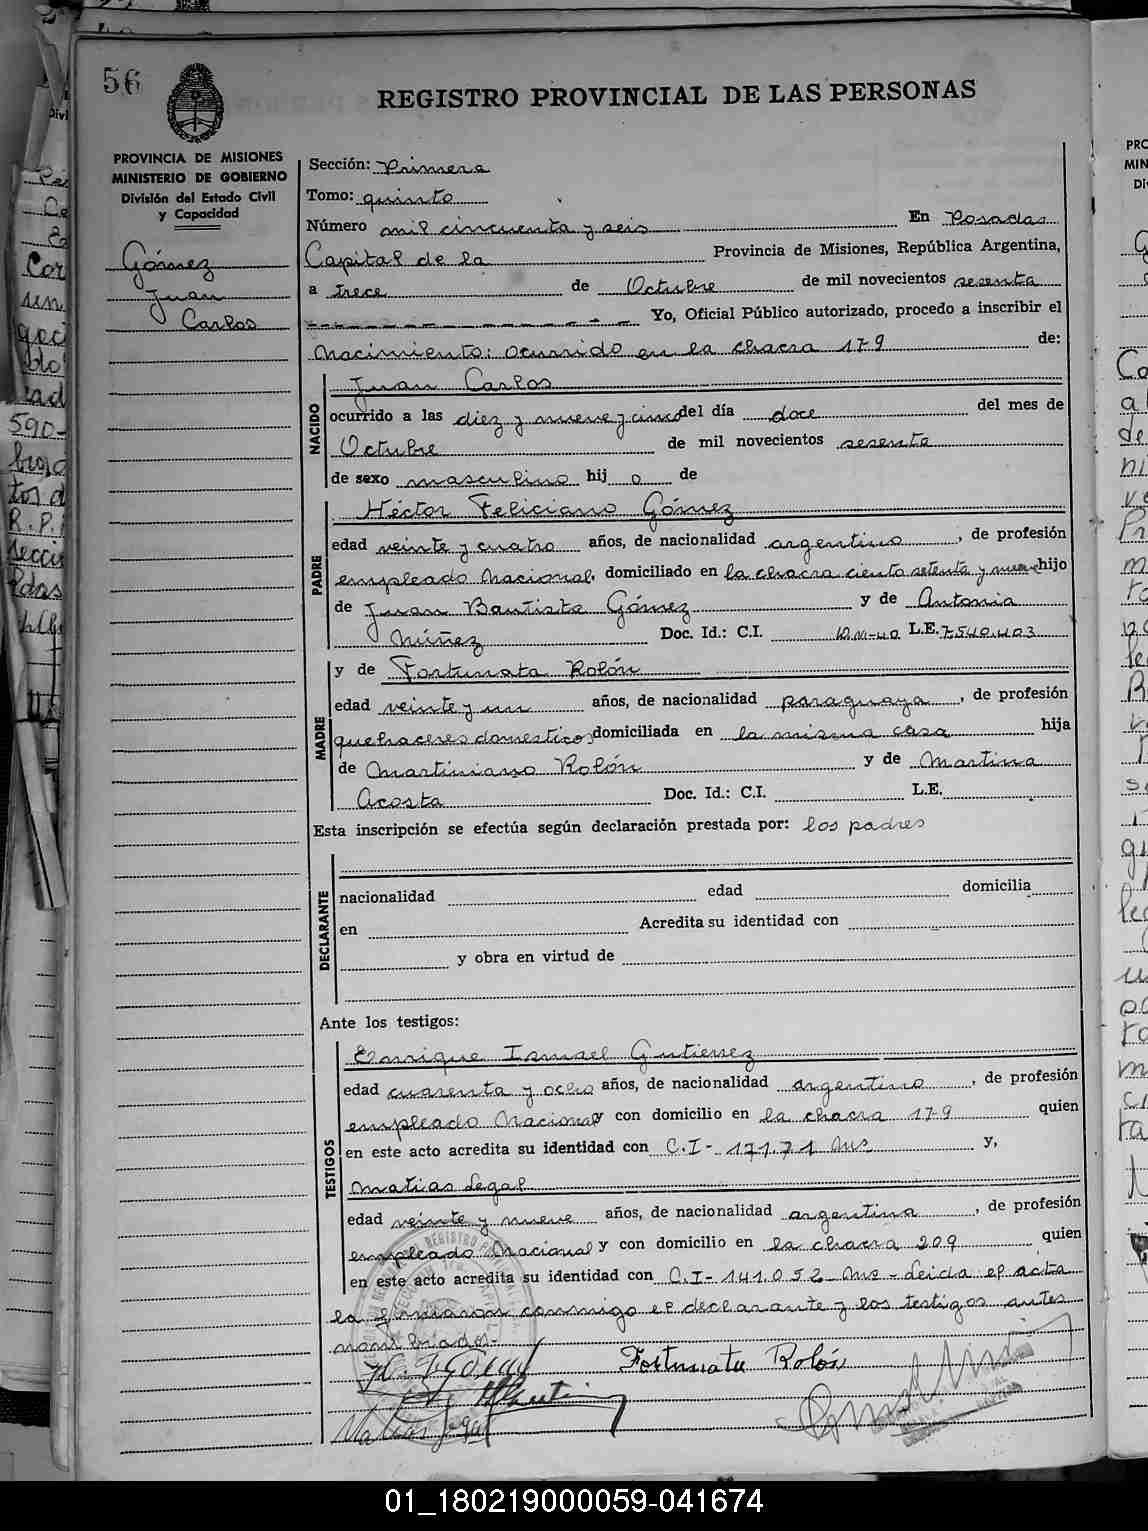 56
REGISTRO PROVINCIAL DE LAS PERSONAS
PROVINCIA DE MISIONES
MINISTERIO DE GOBIERNO
División del Estado Civil
y Capacidad
Gómez
Juan
Carlos
Sección: Primera
Tomo: quinto
Número mil cincuenta y seis En Posadas
Capital de la Provincia de Misiones, República Argentina,
a trece de Octubre de mil novecientos sesenta
Yo, Oficial Público autorizado, procedo a inscribir el
Nacimiento: ocurrido en la chacra 179 de:
NACIDO
Juan Carlos
ocurrido a las diez y nueve y cinco del día doce del mes de
Octubre de mil novecientos sesenta
de sexo masculino hij o de
PADRE
Héctor Feliciano Gómez
edad veinte y cuatro años, de nacionalidad argentino, de profesión
empleado Nacional, domiciliado en la chacra ciento setenta y nueve hijo
de Juan Bautista Gómez y de Antonia
Núñez Doc. Id.: C.I. D.M-40 L.E. 7.540.403
MADRE
y de Fortunata Rolón
edad veinte y un años, de nacionalidad paraguaya, de profesión
quehaceres domesticos domiciliada en la misma casa hija
de Martiniano Rolón y de Martina
Acosta Doc. Id.: C.I. L.E.
Esta inscripción se efectúa según declaración prestada por: los padres
DECLARANTE
nacionalidad edad domicilia
en Acredita su identidad con
y obra en virtud de
Ante los testigos:
TESTIGOS
Enrique Ismael Gutierrez
edad cuarenta y ocho años, de nacionalidad argentino, de profesión
empleado Nacional y con domicilio en la chacra 179 quien
en este acto acredita su identidad con C.I- 171.71 Mns y,
Matias Legal
edad veinte y nueve años, de nacionalidad argentina, de profesión
empleado Nacional y con domicilio en la chacra 209 quien
en este acto acredita su identidad con C.I- 141.052 Mns - Leida el acta
la firmaron conmigo el declarante y los testigos antes
nombrados-
Fortunata Rolón
Matias Legal
01_180219000059-041674